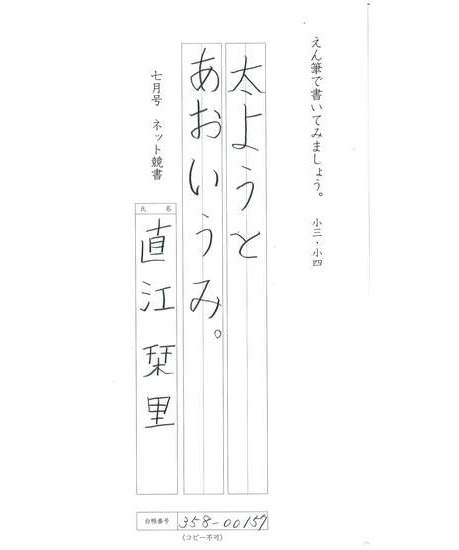 えん筆で書いてみましょう。 小三・小四
太ようと
あおいうみ。
七月号 ネット競書
氏名
直江 栞里
台帳番号 358-00157
(コピー不可)